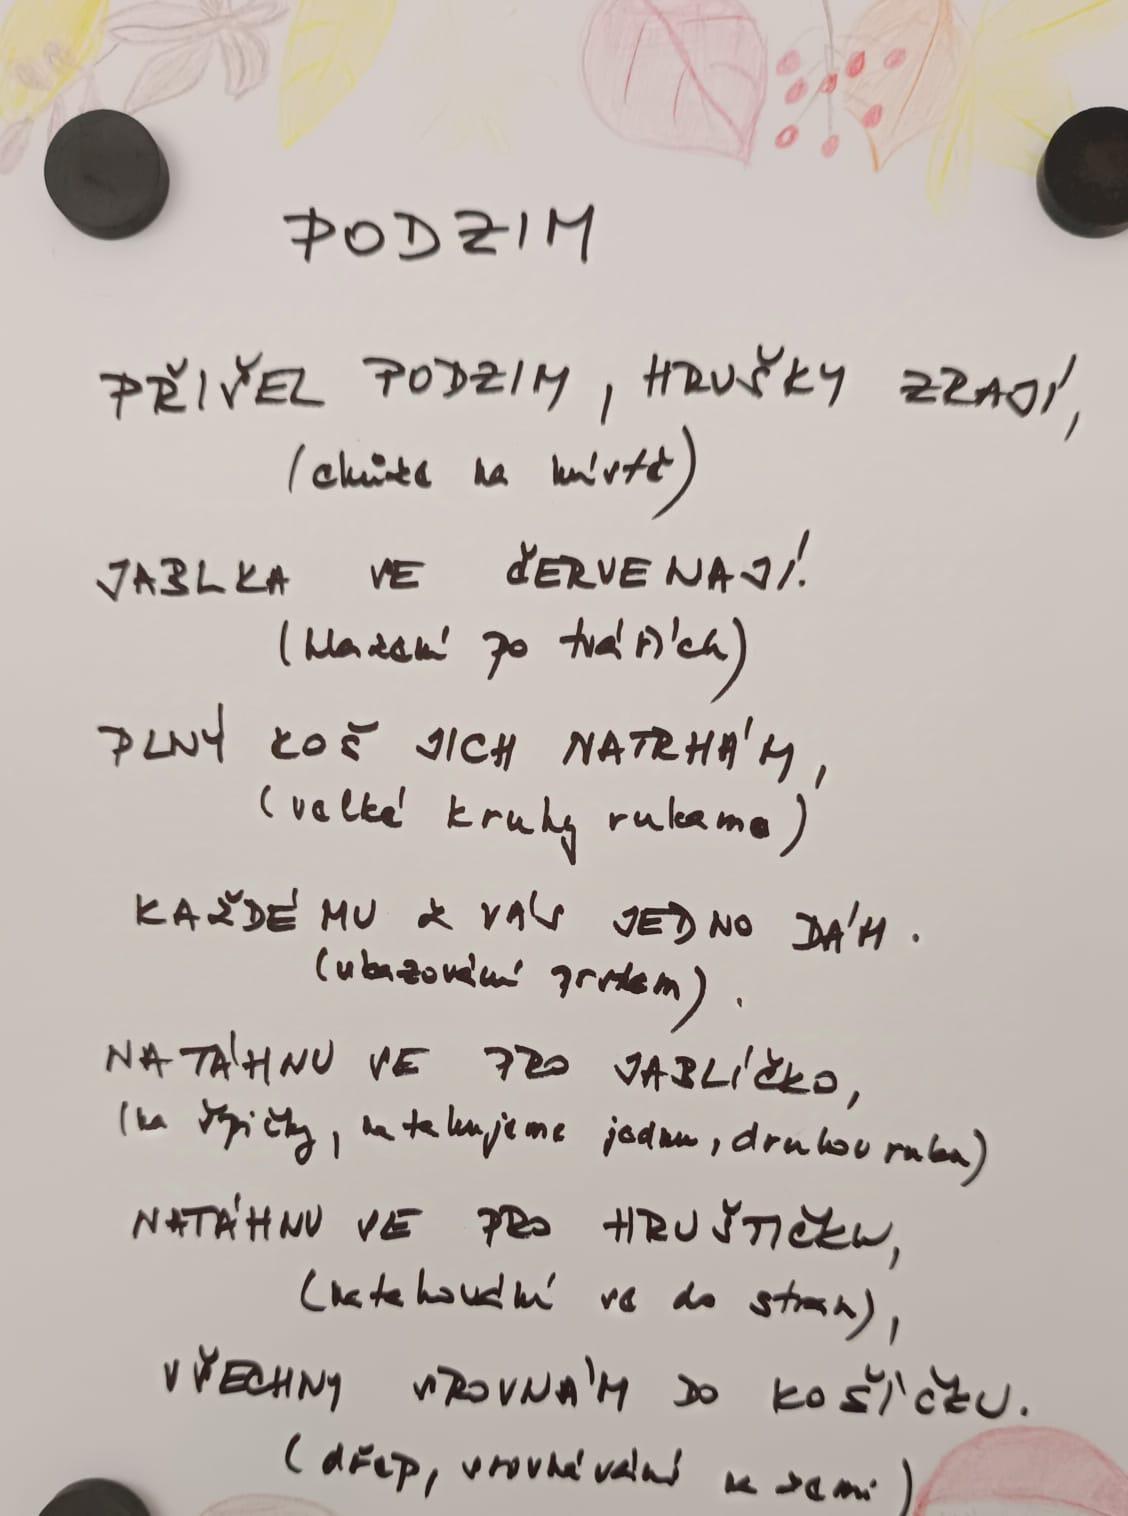 PODZIM
PŘIŠEL PODZIM, HRUŠKY ZRAJÍ,
(chůze na místě)
JABLKA SE ČERVENAJÍ.
(hlazení po tvářích)
PLNÝ KOŠ JICH NATRHÁM,
(velké kruhy rukama)
KAŽDÉMU Z VÁS JEDNO DÁM.
(ukazování prstem).
NATÁHNU SE PRO JABLÍČKO,
(na špičky, natahujeme jednu, druhou ruku)
NATÁHNU SE PRO HRUŠTIČKU,
(natahování se do stran),
VŠECHNY SROVNÁM DO KOŠÍČKU.
(dřep, srovnávání na zemi)